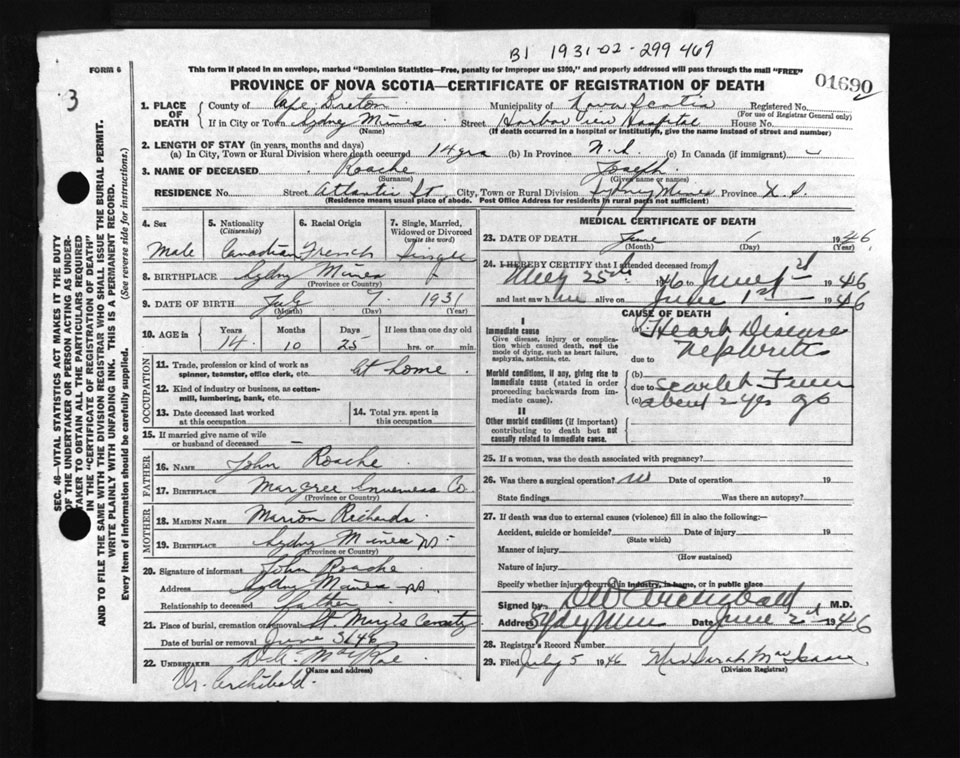 B1 1931-02-299469
FORM 6
This form if placed in an envelope, marked "Dominion Statistics—Free, penalty for improper use $300," and properly addressed will pass through the mail "FREE"
PROVINCE OF NOVA SCOTIA—CERTIFICATE OF REGISTRATION OF DEATH
01690
3
SEC. 46—VITAL STATISTICS ACT MAKES IT THE DUTY
OF THE UNDERTAKER OR PERSON ACTING AS UNDER-
TAKER TO OBTAIN ALL THE PARTICULARS REQUIRED
IN THE "CERTIFICATE OF REGISTRATION OF DEATH"
AND TO FILE THE SAME WITH THE DIVISION REGISTRAR WHO SHALL ISSUE THE BURIAL PERMIT.
WRITE PLAINLY WITH UNFADING INK. THIS IS A PERMANENT RECORD.
Every item of information should be carefully supplied. (See reverse side for instructions.)
1. PLACE OF DEATH
County of Cape Breton Municipality of Nova Scotia Registered No.
(For use of Registrar General only)
If in City or Town Sydney Mines Street Harbor View Hospital House No.
(Name) (If death occurred in a hospital or institution, give the name instead of street and number)
2. LENGTH OF STAY (in years, months and days)
(a) In City, Town or Rural Division where death occurred 14 yrs (b) In Province N.S. (c) In Canada (if immigrant)
3. NAME OF DECEASED Roache Joseph
(Surname) (Given name or names)
RESIDENCE No. Street Atlantic St City, Town or Rural Division Sydney Mines Province N.S.
(Residence means usual place of abode. Post Office Address for residents in rural parts not sufficient)
4. Sex Male
5. Nationality (Citizenship) Canadian
6. Racial Origin French
7. Single, Married, Widowed or Divorced (write the word) Single
8. BIRTHPLACE Sydney Mines
(Province or Country)
9. DATE OF BIRTH July 7, 1931
(Month) (Day) (Year)
10. AGE in Years Months Days If less than one day old
14 10 25 hrs. or min.
OCCUPATION
11. Trade, profession or kind of work as spinner, teamster, office clerk, etc. at home
12. Kind of industry or business, as cotton-mill, lumbering, bank, etc.
13. Date deceased last worked at this occupation
14. Total yrs. spent in this occupation
15. If married give name of wife or husband of deceased —
FATHER
16. NAME John Roache
17. BIRTHPLACE Margree Inverness Co
(Province or Country)
MOTHER
18. MAIDEN NAME Marion Richards
19. BIRTHPLACE Sydney Mines NS
(Province or Country)
20. Signature of informant John Roache
Address Sydney Mines NS
Relationship to deceased father
21. Place of burial, cremation or removal St Mary's
Date of burial or removal June 3/46
22. UNDERTAKER MacRae
(Name and address)
Dr. Archibald.
MEDICAL CERTIFICATE OF DEATH
23. DATE OF DEATH June 1 1946
(Month) (Day) (Year)
24. I HEREBY CERTIFY that I attended deceased from
May 25th 46 to June 1st 1946
and last saw him alive on June 1st 1946
CAUSE OF DEATH
I
Immediate cause
Give disease, injury or complication which caused death, not the mode of dying, such as heart failure, asphyxia, asthenia, etc.
(a) Heart Disease
Nephritis
due to
Morbid conditions, if any, giving rise to immediate cause (stated in order proceeding backwards from immediate cause).
(b)
due to Scarlet Fever
(c) about 2 yrs ago
II
Other morbid conditions (if important) contributing to death but not causally related to immediate cause.
25. If a woman, was the death associated with pregnancy?
26. Was there a surgical operation? no Date of operation 19
State findings Was there an autopsy?
27. If death was due to external causes (violence) fill in also the following:—
Accident, suicide or homicide? Date of injury 19
(State which)
Manner of injury
(How sustained)
Nature of injury
Specify whether injury occurred in industry, in home, or in public place
Signed by Archibald M.D.
Address Sydney Mines Date June 2nd 1946
28. Registrar's Record Number
29. Filed July 5 1946 Mrs Sarah MacIsaac
(Division Registrar)